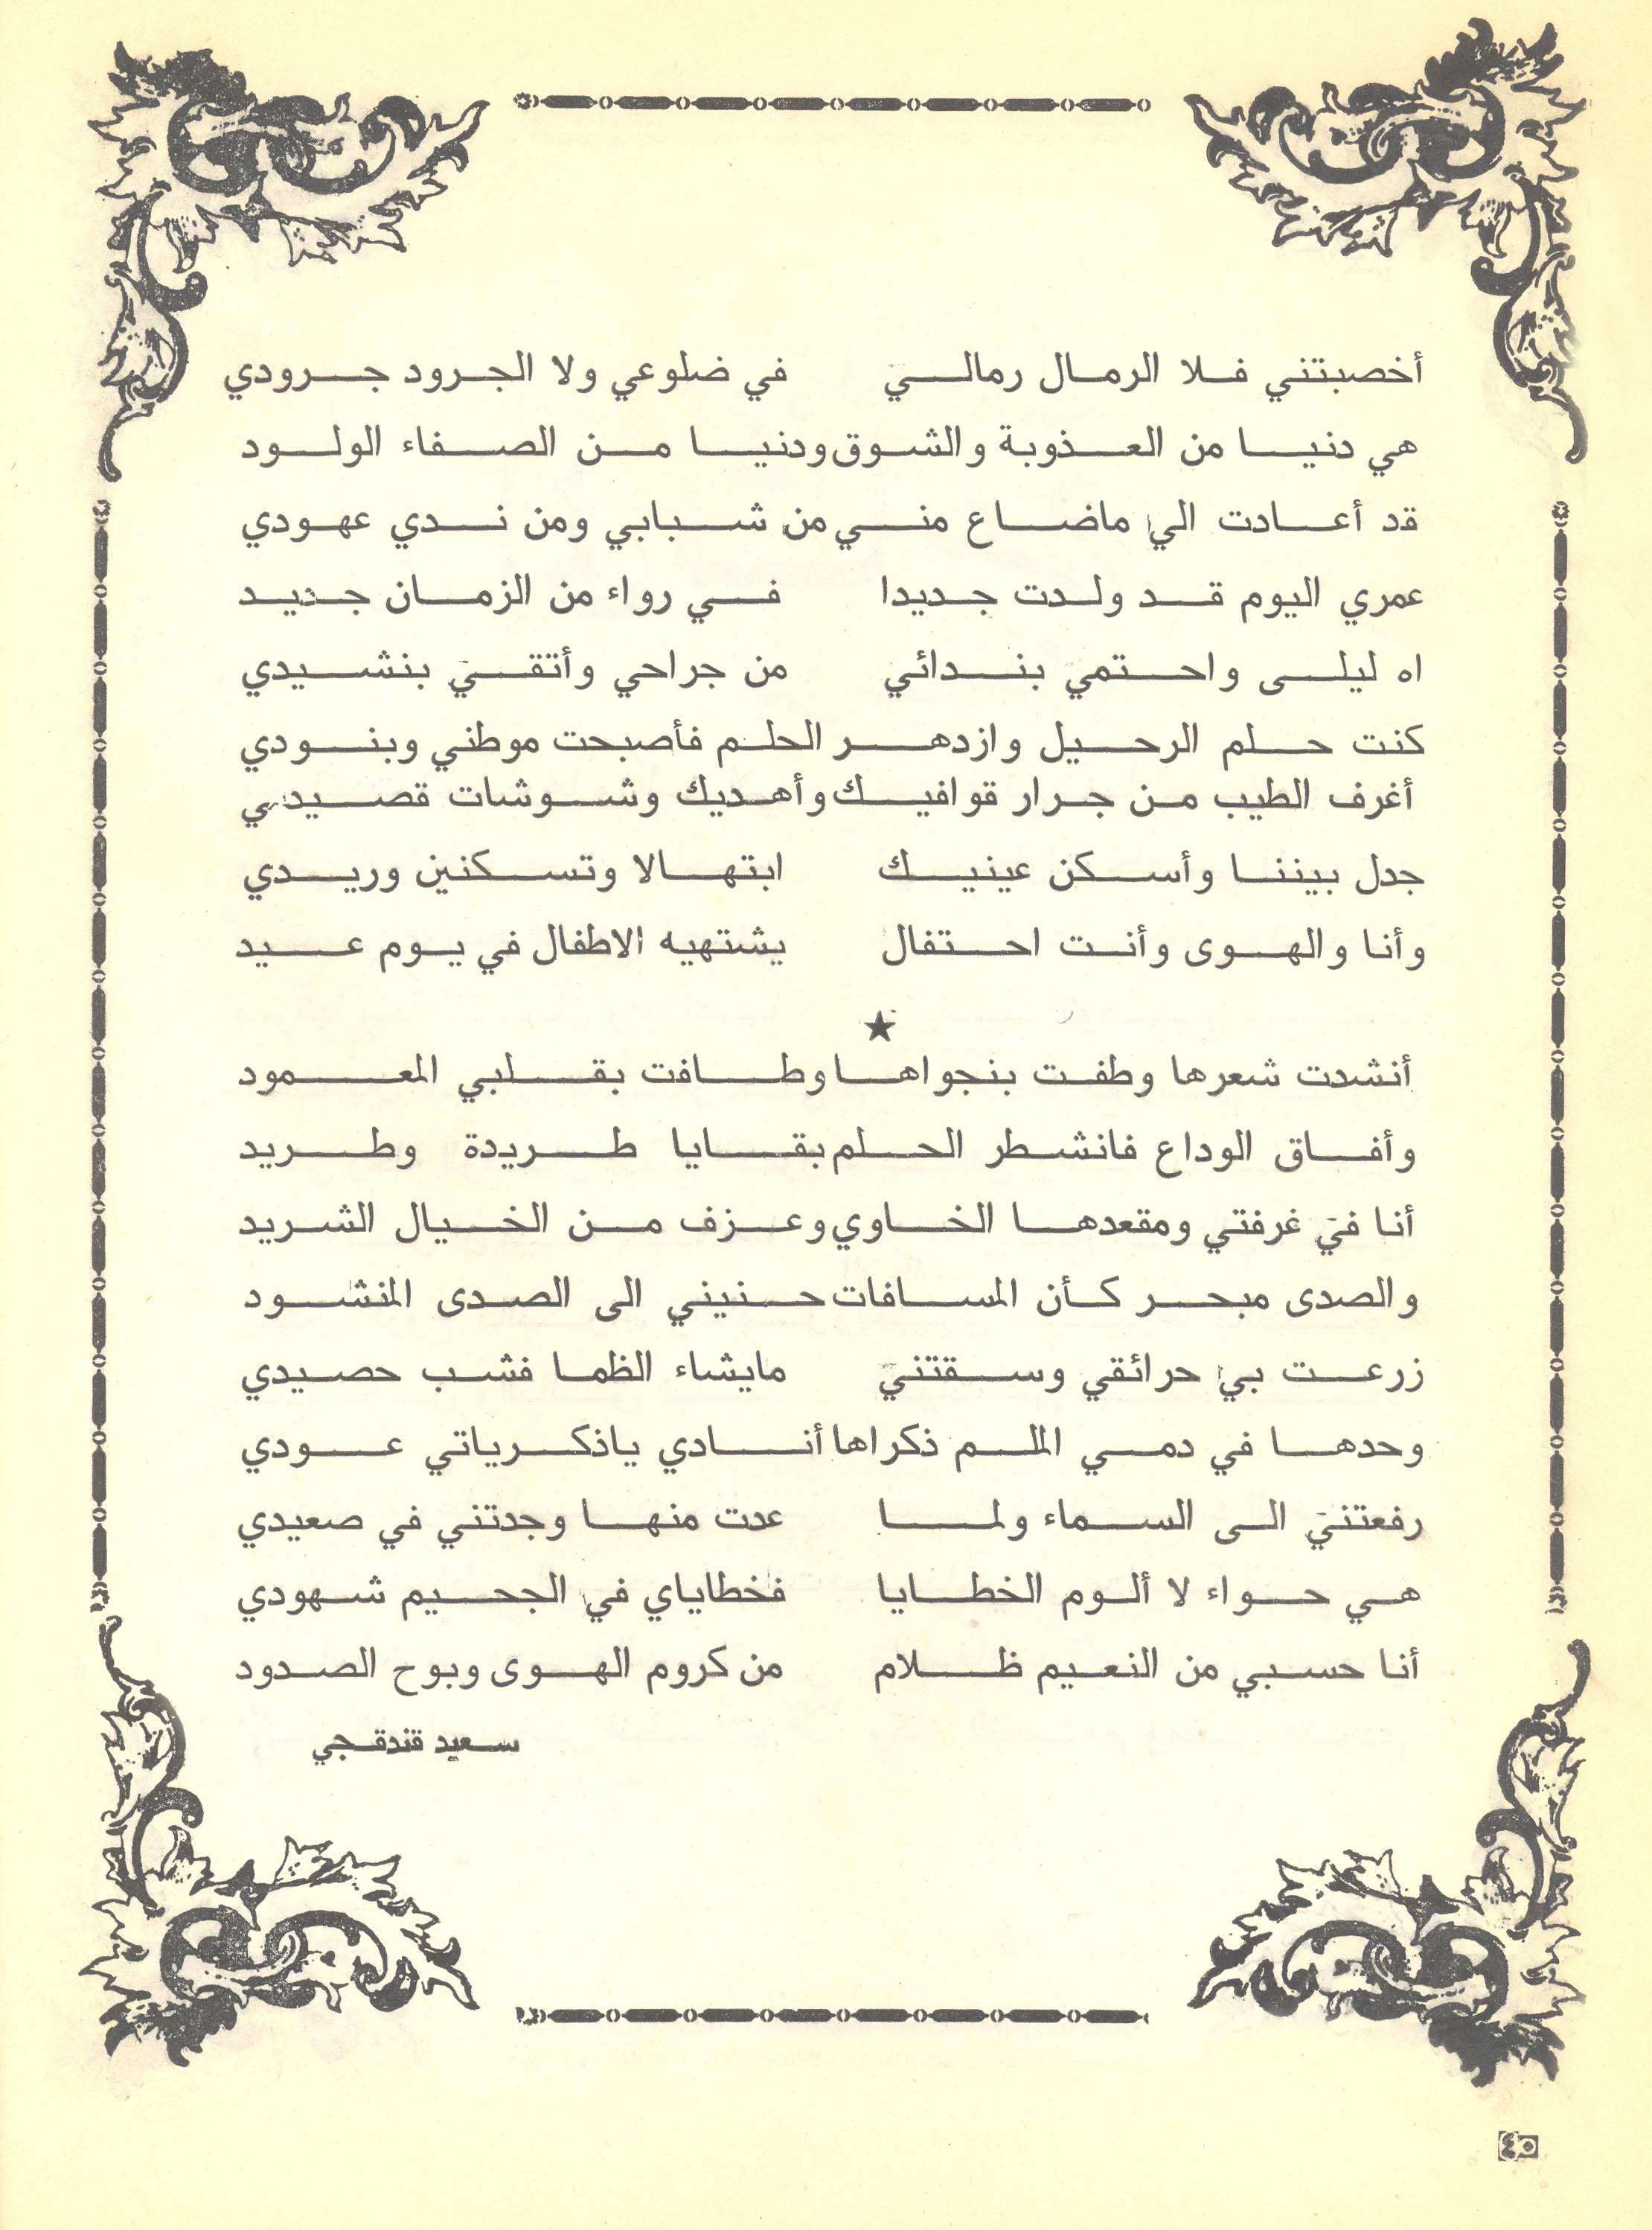 أخصبتني فلا الرمال رمالي في ضلوعي ولا الجرود جرودي
هي دنيا من العذوبة والشوق ودنيا من الصفاء الولود
قد أعادت الي ماضاع مني من شبابي ومن ندي عهودي
عمري اليوم قد ولدت جديدا في رواء من الزمان جديد
اه ليلى واحتمي بندائي من جراحي وأتقي بنشيدي
كنت حلم الرحيل وازدهر الحلم فأصبحت موطني وبنودي
أغرف الطيب من جرار قوافيك وأهديك وشوشات قصيدي
جدل بيننا وأسكن عينيك ابتهالا وتسكنين وريدي
وأنا والهوى وأنت احتفال يشتهيه الاطفال في يوم عيد
★
أنشدت شعرها وطفت بنجواها وطافت بقلبي المعمود
وأفاق الوداع فانشطر الحلم بقايا طريدة وطريد
أنا في غرفتي ومقعدها الخاوي وعزف من الخيال الشريد
والصدى مبحر كأن المسافات حنيني الى الصدى المنشود
زرعت بي حرائقي وسقتني مايشاء الظما فشب حصيدي
وحدها في دمي الملم ذكراها أنادي ياذكرياتي عودي
رفعتني الى السماء ولما عدت منها وجدتني في صعيدي
هي حواء لا ألوم الخطايا فخطاياي في الجحيم شهودي
أنا حسبي من النعيم ظلام من كروم الهوى وبوح الصدود
سعيد قندقجي
٤٥